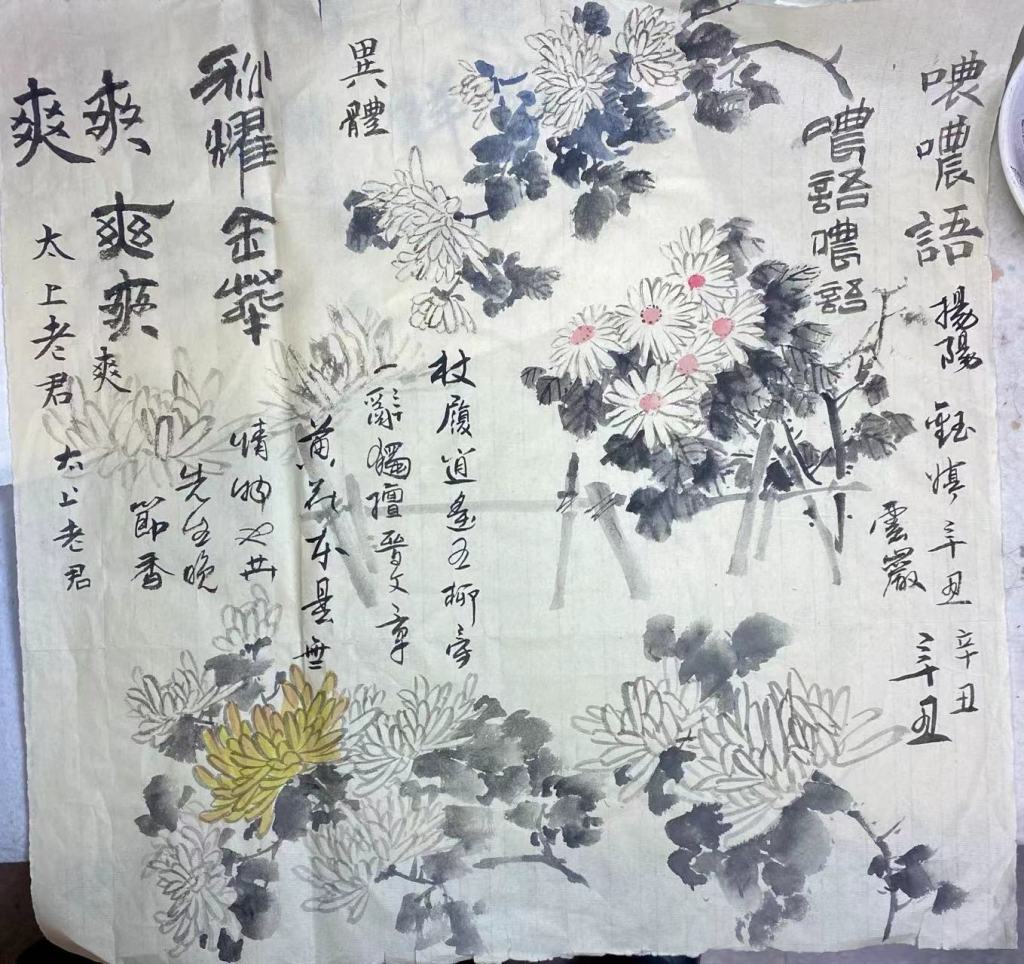 噥噥語
揚陽
甄慎辛丑
辛丑
雲巖
辛丑
噥語噥語
異體
杖履逍遙五柳旁
一辭獨擅晉文章
黃花本是無
情物也共
先生晚
節香
秋耀金華
爽爽
爽爽爽
爽
太上老君
太上老君